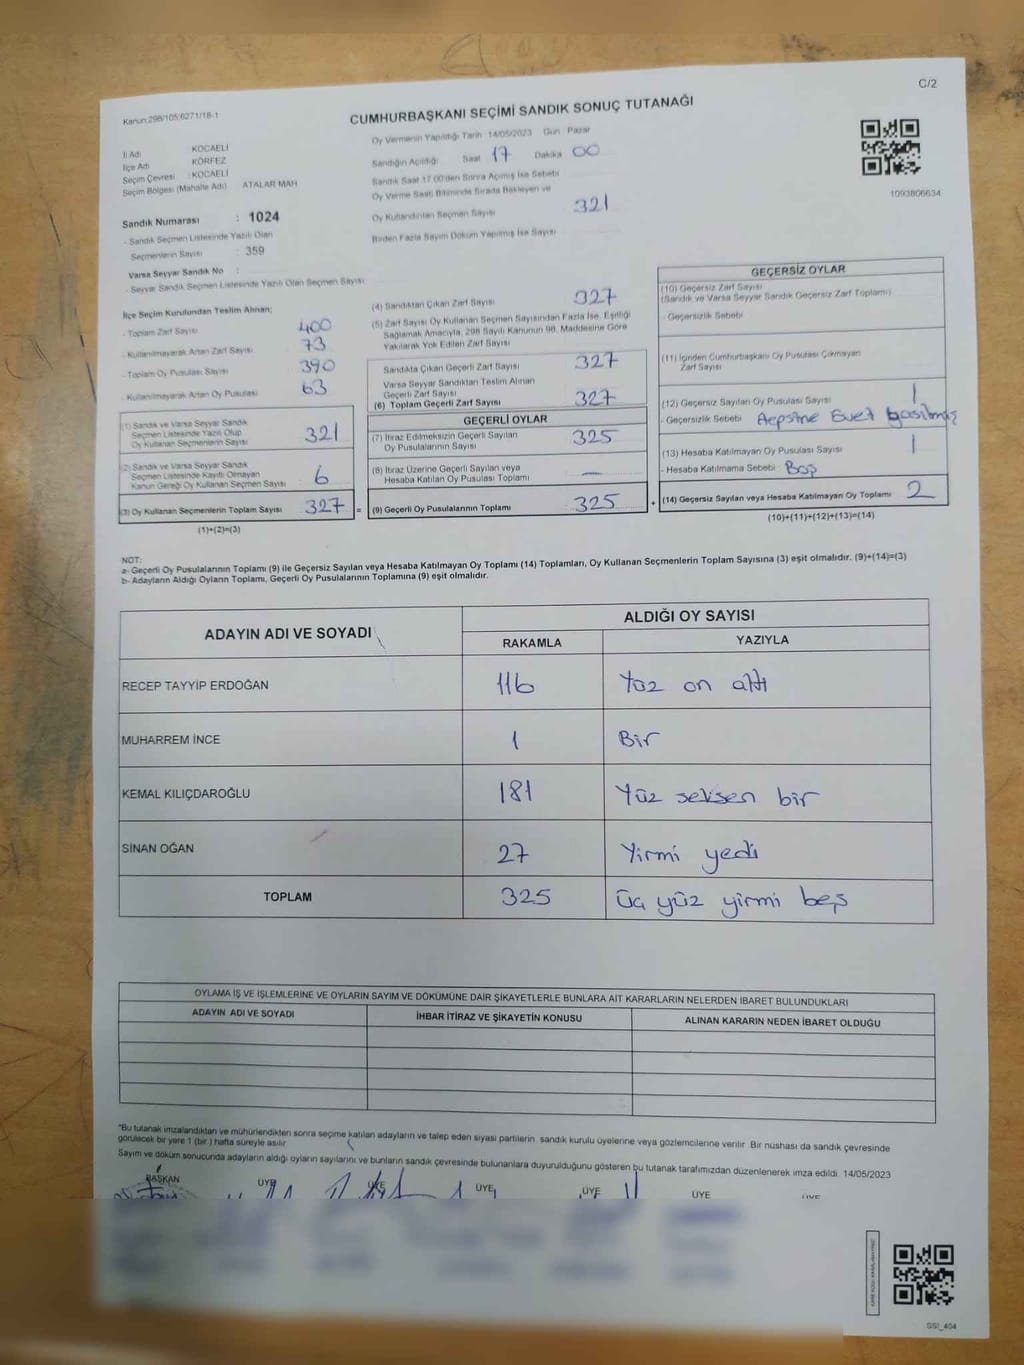 C/2
Kanun:298/105;6271/18-1
CUMHURBAŞKANI SEÇİMİ SANDIK SONUÇ TUTANAĞI
İl Adı : KOCAELİ
İlçe Adı : KÖRFEZ
Seçim Çevresi : KOCAELİ
Seçim Bölgesi (Mahalle Adı) ATALAR MAH
Sandık Numarası : 1024
- Sandık Seçmen Listesinde Yazılı Olan
Seçmenlerin Sayısı : 359
Varsa Seyyar Sandık No :
- Seyyar Sandık Seçmen Listesinde Yazılı Olan Seçmen Sayısı:
Oy Vermenin Yapıldığı Tarih 14/05/2023 Gün : Pazar
Sandığın Açıldığı Saat 17 Dakika 00
Sandık Saat 17.00'den Sonra Açılmış İse Sebebi
Oy Verme Saati Bitiminde Sırada Bekleyen ve
Oy Kullandırılan Seçmen Sayısı 321
Birden Fazla Sayım Döküm Yapılmış İse Sayısı
1093806634
İlçe Seçim Kurulundan Teslim Alınan;
- Toplam Zarf Sayısı 400
- Kullanılmayarak Artan Zarf Sayısı 73
- Toplam Oy Pusulası Sayısı 390
- Kullanılmayarak Artan Oy Pusulası 63
(1) Sandık ve Varsa Seyyar Sandık
Seçmen Listesinde Yazılı Olup
Oy Kullanan Seçmenlerin Sayısı 321
(2) Sandık ve Varsa Seyyar Sandık
Seçmen Listesinde Kayıtlı Olmayan
Kanun Gereği Oy Kullanan Seçmen Sayısı 6
(3) Oy Kullanan Seçmenlerin Toplam Sayısı 327 =
(1)+(2)=(3)
(4) Sandıktan Çıkan Zarf Sayısı 327
(5) Zarf Sayısı Oy Kullanan Seçmen Sayısından Fazla İse, Eşitliği
Sağlamak Amacıyla, 298 Sayılı Kanunun 98. Maddesine Göre
Yakılarak Yok Edilen Zarf Sayısı
Sandıkta Çıkan Geçerli Zarf Sayısı 327
Varsa Seyyar Sandıktan Teslim Alınan
Geçerli Zarf Sayısı
(6) Toplam Geçerli Zarf Sayısı 327
GEÇERLİ OYLAR
(7) İtiraz Edilmeksizin Geçerli Sayılan
Oy Pusulalarının Sayısı 325
(8) İtiraz Üzerine Geçerli Sayılan veya
Hesaba Katılan Oy Pusulası Toplamı —
(9) Geçerli Oy Pusulalarının Toplamı 325 +
GEÇERSİZ OYLAR
(10) Geçersiz Zarf Sayısı
(Sandık ve Varsa Seyyar Sandık Geçersiz Zarf Toplamı)
- Geçersizlik Sebebi
(11) İçinden Cumhurbaşkanı Oy Pusulası Çıkmayan
Zarf Sayısı
(12) Geçersiz Sayılan Oy Pusulası Sayısı 1
- Geçersizlik Sebebi : Hepsine Evet basılmış
(13) Hesaba Katılmayan Oy Pusulası Sayısı 1
- Hesaba Katılmama Sebebi : Boş
(14) Geçersiz Sayılan veya Hesaba Katılmayan Oy Toplamı 2
(10)+(11)+(12)+(13)=(14)
NOT:
a- Geçerli Oy Pusulalarının Toplamı (9) ile Geçersiz Sayılan veya Hesaba Katılmayan Oy Toplamı (14) Toplamları, Oy Kullanan Seçmenlerin Toplam Sayısına (3) eşit olmalıdır. (9)+(14)=(3)
b- Adayların Aldığı Oyların Toplamı, Geçerli Oy Pusulalarının Toplamına (9) eşit olmalıdır.
ADAYIN ADI VE SOYADI ALDIĞI OY SAYISI
RAKAMLA YAZIYLA
RECEP TAYYİP ERDOĞAN 116 Yüz on altı
MUHARREM İNCE 1 Bir
KEMAL KILIÇDAROĞLU 181 Yüz seksen bir
SİNAN OĞAN 27 Yirmi yedi
TOPLAM 325 Üç yüz yirmi beş
OYLAMA İŞ VE İŞLEMLERİNE VE OYLARIN SAYIM VE DÖKÜMÜNE DAİR ŞİKAYETLERLE BUNLARA AİT KARARLARIN NELERDEN İBARET BULUNDUKLARI
ADAYIN ADI VE SOYADI İHBAR İTİRAZ VE ŞİKAYETİN KONUSU ALINAN KARARIN NEDEN İBARET OLDUĞU
*Bu tutanak imzalandıktan ve mühürlendikten sonra seçime katılan adayların ve talep eden siyasi partilerin sandık kurulu üyelerine veya gözlemcilerine verilir. Bir nüshası da sandık çevresinde
görülecek bir yere 1 (bir) hafta süreyle asılır
Sayım ve döküm sonucunda adayların aldığı oyların sayılarını ve bunların sandık çevresinde bulunanlara duyurulduğunu gösteren bu tutanak tarafımızdan düzenlenerek imza edildi. 14/05/2023
BAŞKAN ÜYE ÜYE ÜYE ÜYE ÜYE ÜYE
SSİ_404